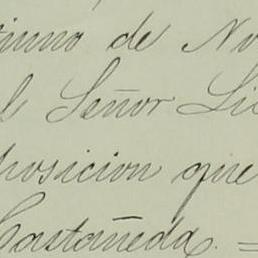 de No
Señor Lic
posicion que
Castañeda. =